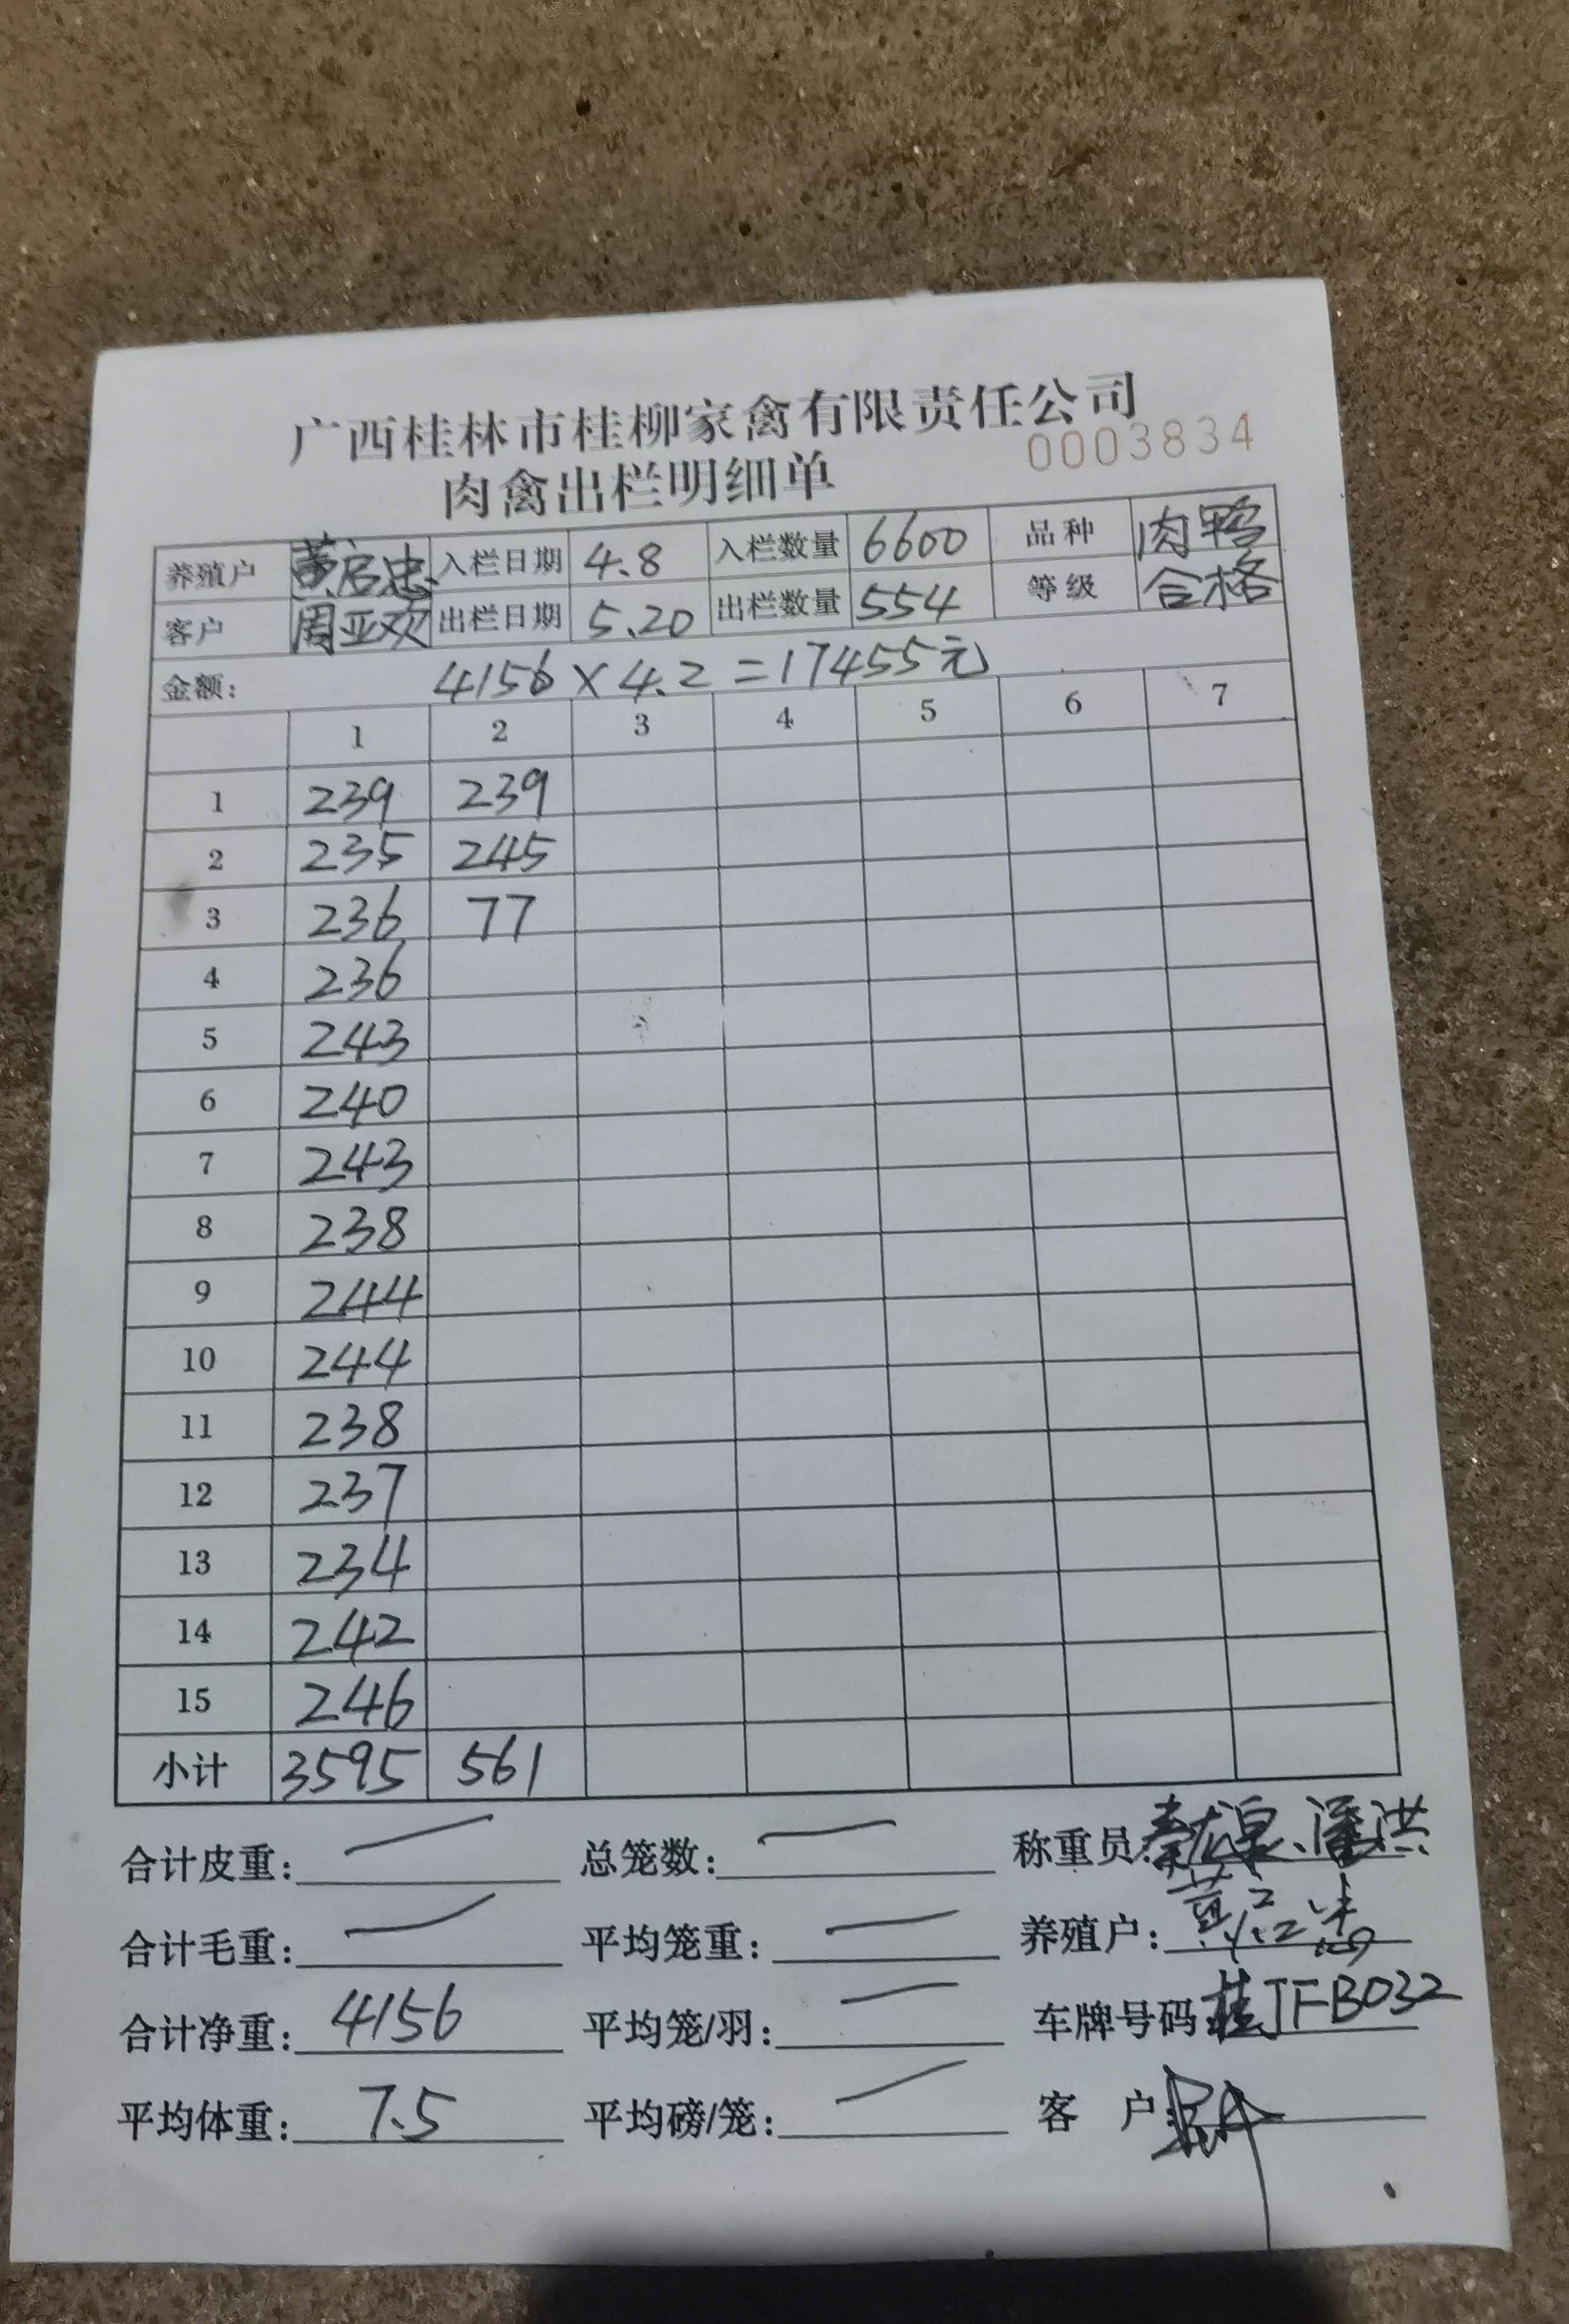 广西桂林市桂柳家禽有限责任公司
0003834
肉禽出栏明细单
养殖户 黄启忠 入栏日期 4.8 入栏数量 6600 品种 肉鸭
客户 周亚欢 出栏日期 5.20 出栏数量 554 等级 合格
金额: 4156×4.2=17455元
1 2 3 4 5 6 7
1 239 239
2 235 245
3 236 77
4 236
5 243
6 240
7 243
8 238
9 244
10 244
11 238
12 237
13 234
14 242
15 246
小计 3595 561
合计皮重: 总笼数: 称重员: 秦龙泉、潘洪
合计毛重: 平均笼重: 养殖户: 黄启忠
合计净重: 4156 平均笼/羽: 车牌号码 桂JFB032
平均体重: 7.5 平均磅/笼: 客户: